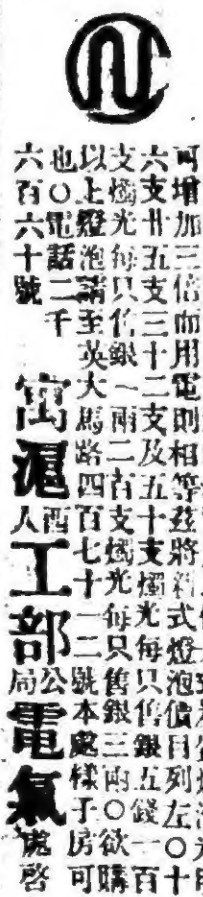 可增加三倍而用電則相等茲將各式燈泡價目列左〇十
六支廿五支三十二支及五十支燭光每只售銀五錢一百
支燭光每只售銀一兩二百支燭光每只售銀三兩〇欲購
以上燈泡請至英大馬路四百七十一二號本處樣子房可
也〇電話二千
六百六十號
寓滬西人工部公局電氣處啓